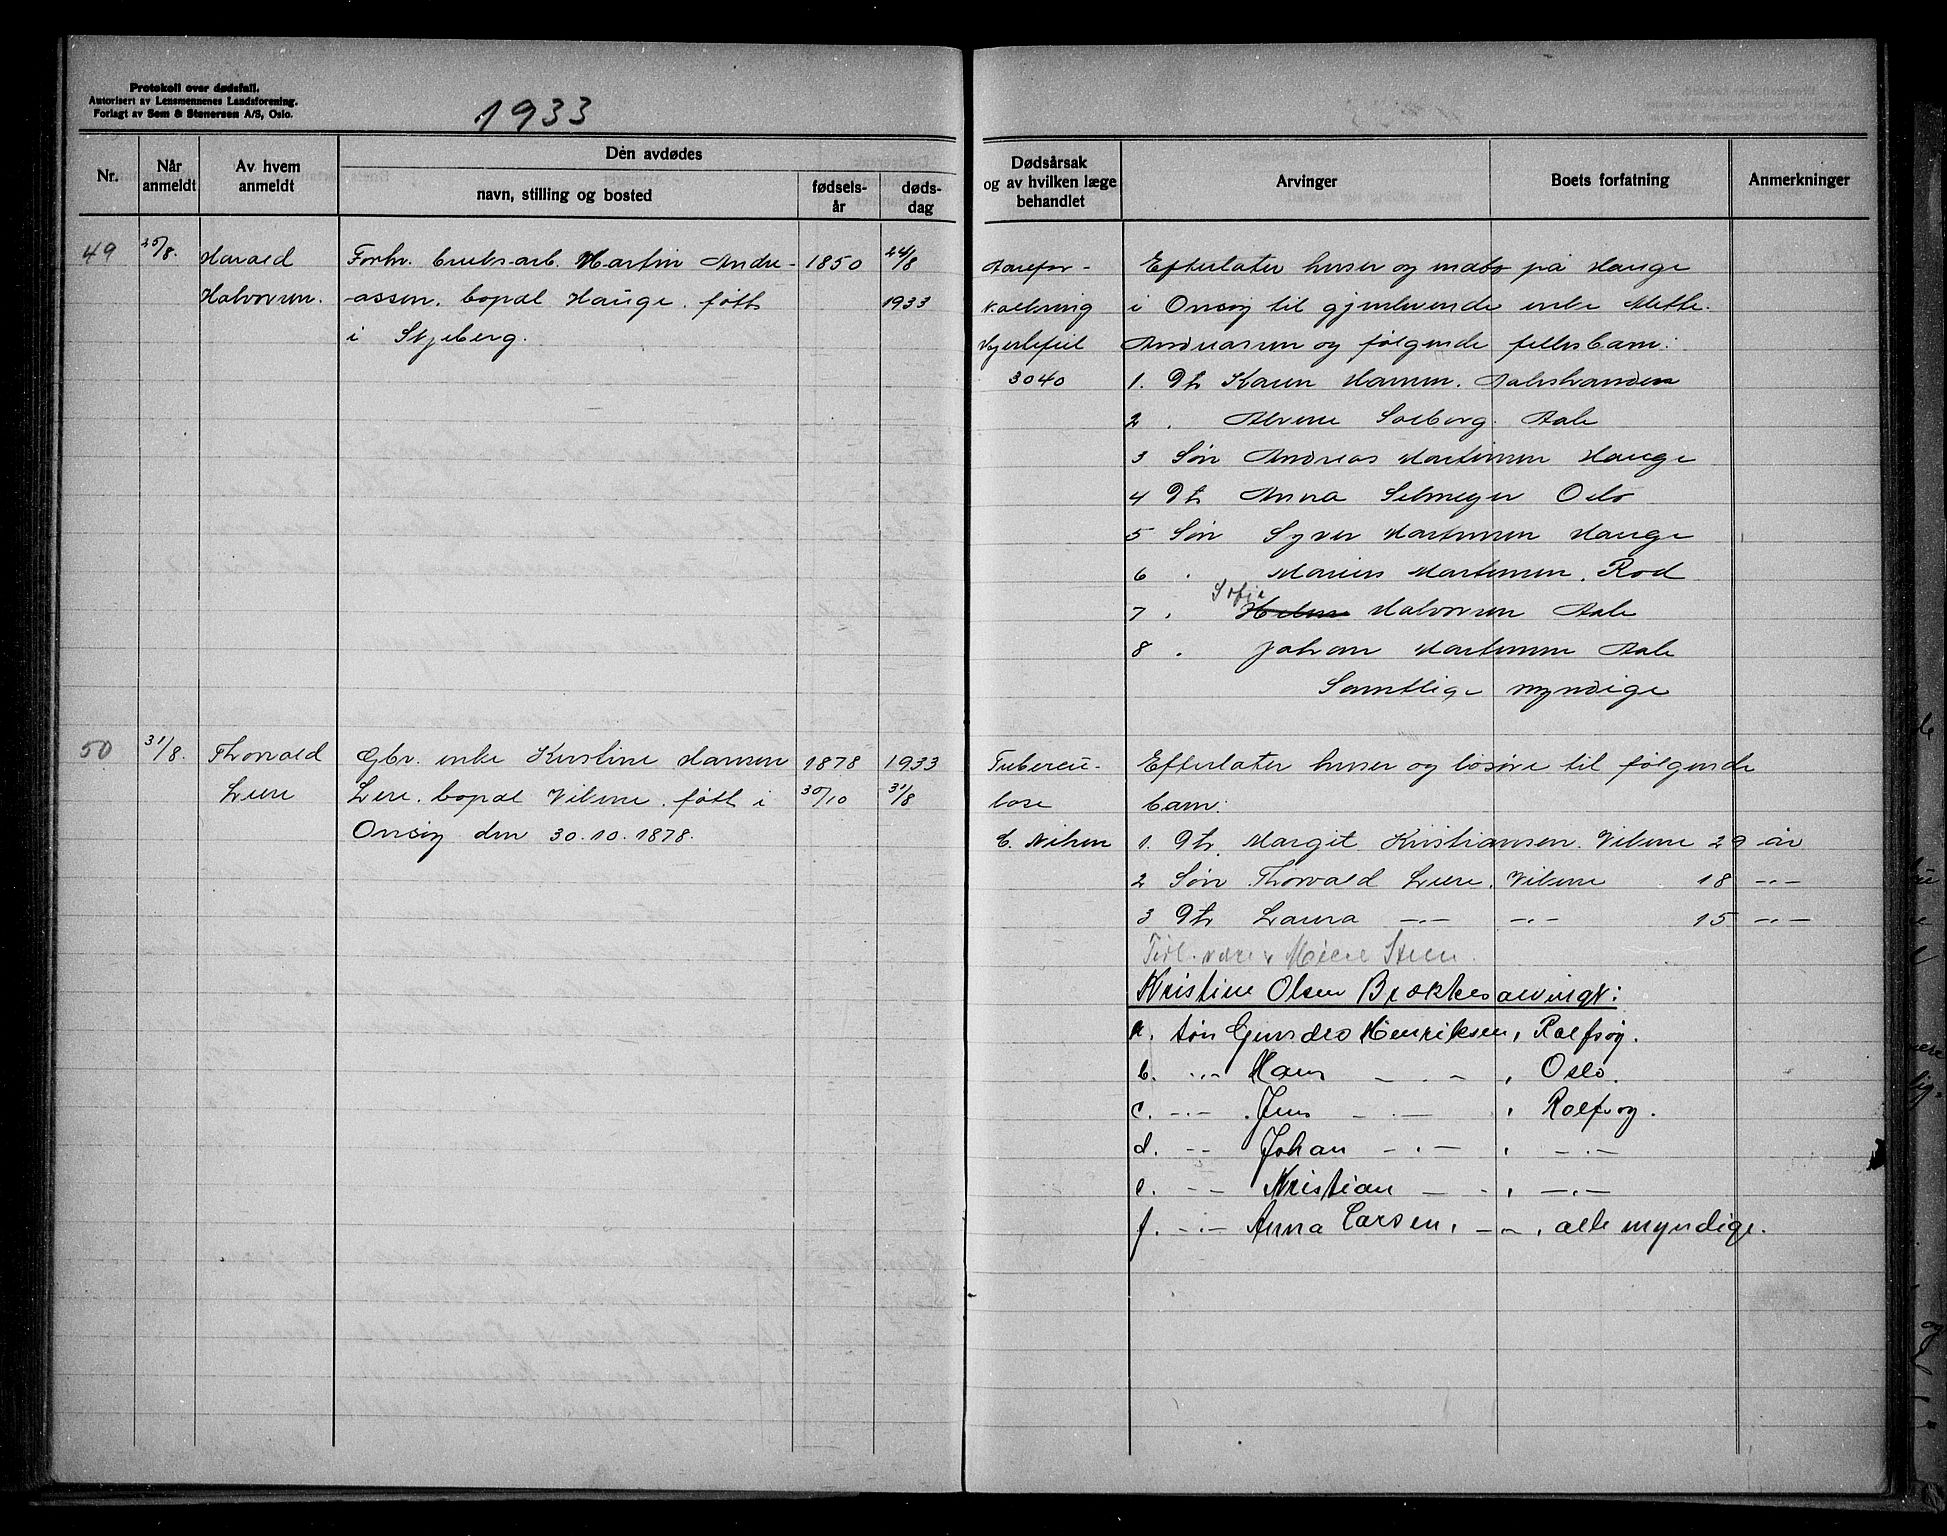 Protokoll over dødsfall.
Autorisert av Lensmennenes Landsforening.
Forlagt av Sem & Stenersen A/S, Oslo.
1933
Nr.
Når anmeldt
Av hvem anmeldt
Den avdødes
navn, stilling og bosted
fødsels-år
døds-dag
Dødsårsak og av hvilken læge behandlet
Arvinger
Boets forfatning
Anmerkninger
49 25/8. Harald Forhv. bruksarb. Martin Andre- 1850 24/8
Halvorsen. assen. bopæl Hauge. født 1933
i Skjeberg.
Aarefor-
kalkning
Hjertefeil
3040
Efterlater huser og indbo på Hauge
i Onsøy til gjenlevende enke Mette.
Andreasen og følgende fellesbarn:
1. Dt Karen Hansen. Aalestranden
2 . Alvine Solberg. Aale
3 Søn Andreas Martinsen Hauge
4 Dt Anna Selmeyer Oslo
5 Søn Syver Martinsen Hauge
6 . Marius Martinsen. Rød
Sofie
7 . Halvorsen Aale
8 . Johan Martinsen Aale
Samtlige myndige
50 31/8. Thorvald Gbr. enke Kristine Hansen 1878 1933
Lere Lere. bopæl Vikene. født i 30/10 31/8
Onsøy den 30.10.1878.
Tubercu-
lose
C. Nilsen
Efterlater huser og løsøre til følgende
barn:
1. Dt. Margit Kristiansen. Vikene 29 år
2 Søn Thorvald Lere. Vikene 18 -"-
3 Dt Laura -"- -"- 15 -"-
Kristine Olsen Brækkes arvinger:
a. søn Henriksen, Rolfsøy.
b. -"- Hans -"-, Oslo.
c. -"- Jens -"-, Rolfsøy.
d. -"- Johan -"-, -"-
e. -"- Kristian -"-, -"-
f. -"- Anna Larsen, -"-, alle myndige.